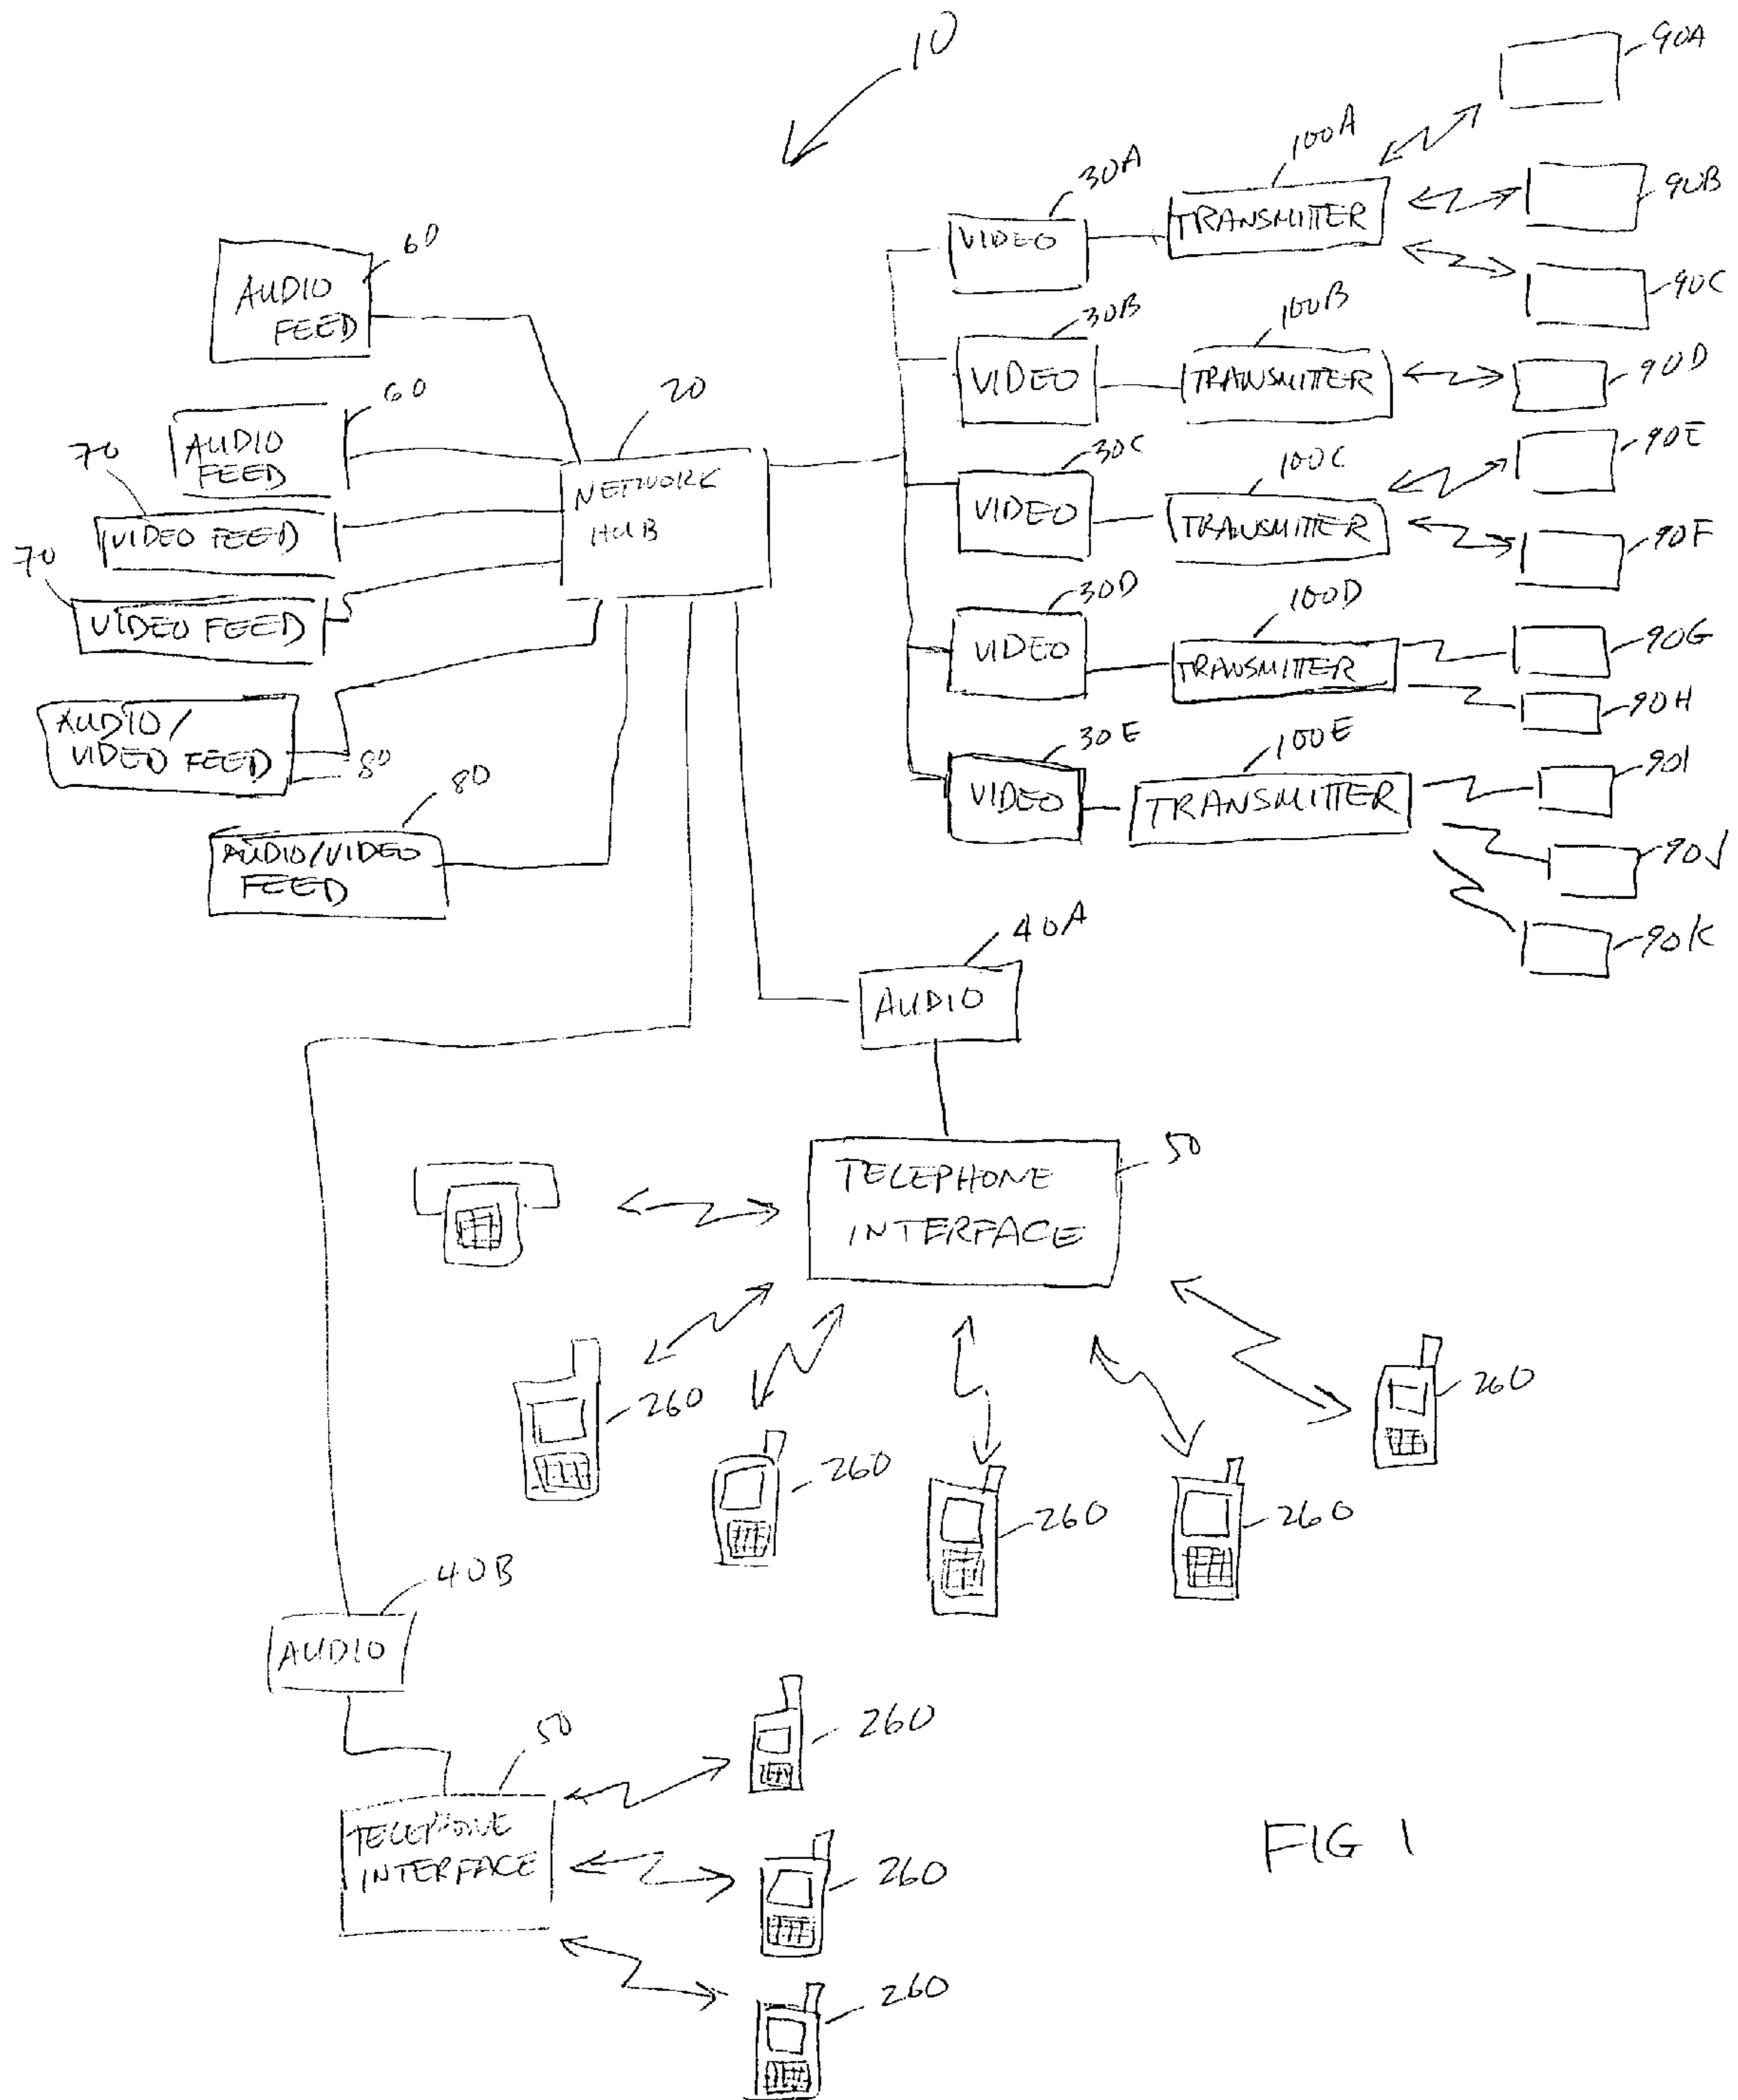 10
90A
100A
30A
90B
TRANSMITTER
VIDEO
60
90C
AUDIO
FEED
30B
100B
VIDEO
TRANSMITTER
90D
60
20
AUDIO
FEED
70
30C
100C
90E
NETWORK
HUB
VIDEO
TRANSMITTER
90F
VIDEO FEED
70
VIDEO FEED
30D
100D
90G
VIDEO
TRANSMITTER
90H
AUDIO/
VIDEO FEED
80
30E
100E
90I
VIDEO
TRANSMITTER
80
AUDIO/VIDEO
FEED
90J
90K
40A
AUDIO
50
TELEPHONE
INTERFACE
260
260
260
260
260
40B
AUDIO
260
50
TELEPHONE
INTERFACE
260
260
FIG 1